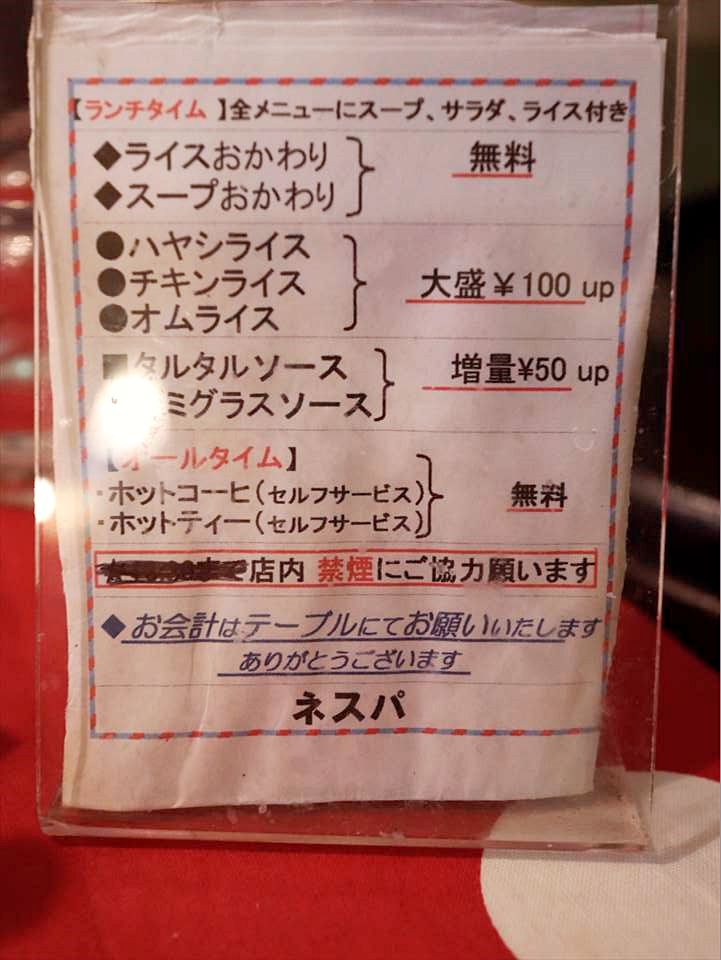 【ランチタイム】全メニューにスープ、サラダ、ライス付き
◆ライスおかわり
◆スープおかわり
無料
●ハヤシライス
●チキンライス
●オムライス
大盛￥100 up
■タルタルソース
ミグラスソース
増量¥50 up
【オールタイム】
・ホットコーヒ(セルフサービス)
・ホットティー(セルフサービス)
無料
店内 禁煙にご協力願います
◆お会計はテーブルにてお願いいたします
ありがとうございます
ネスパ